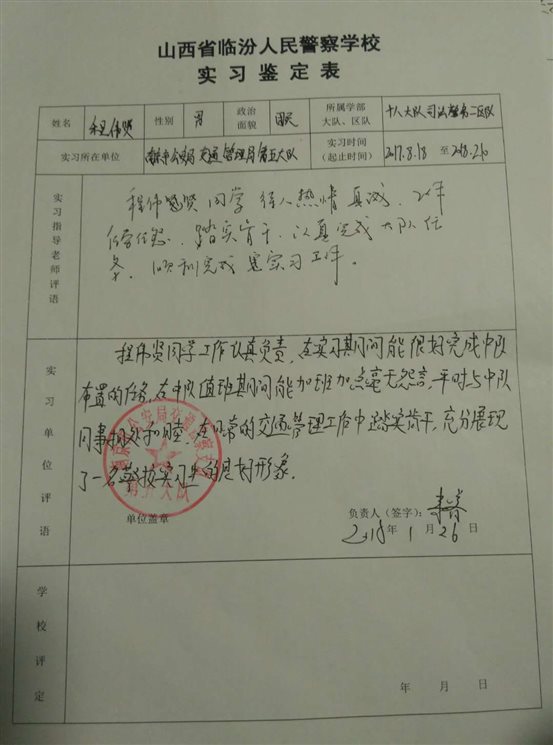 山西省临汾人民警察学校
实习鉴定表
姓名 程伟贤 性别 男 政治面貌 团员 所属学部大队、区队 十八大队司法警务二区队
实习所在单位 公安局交通管理局第五大队 实习时间(起止时间) 2017.8.18 至 2018.2.10
实习指导老师评语
程伟贤同学待人热情真诚,工作
任劳任怨,踏实肯干,认真完成大队任
务,顺利完成实习工作。
实习单位评语
程伟贤同学工作认真负责,在实习期间能很好完成中队
布置的任务,在中队值班期间能加班加点毫无怨言,平时与中队
同事相处和睦,在日常的交通管理工作中踏实肯干,充分展现
了一名警校实习生的良好形象。
单位盖章
负责人(签字):
2018年1月26日
学校评定
年 月 日